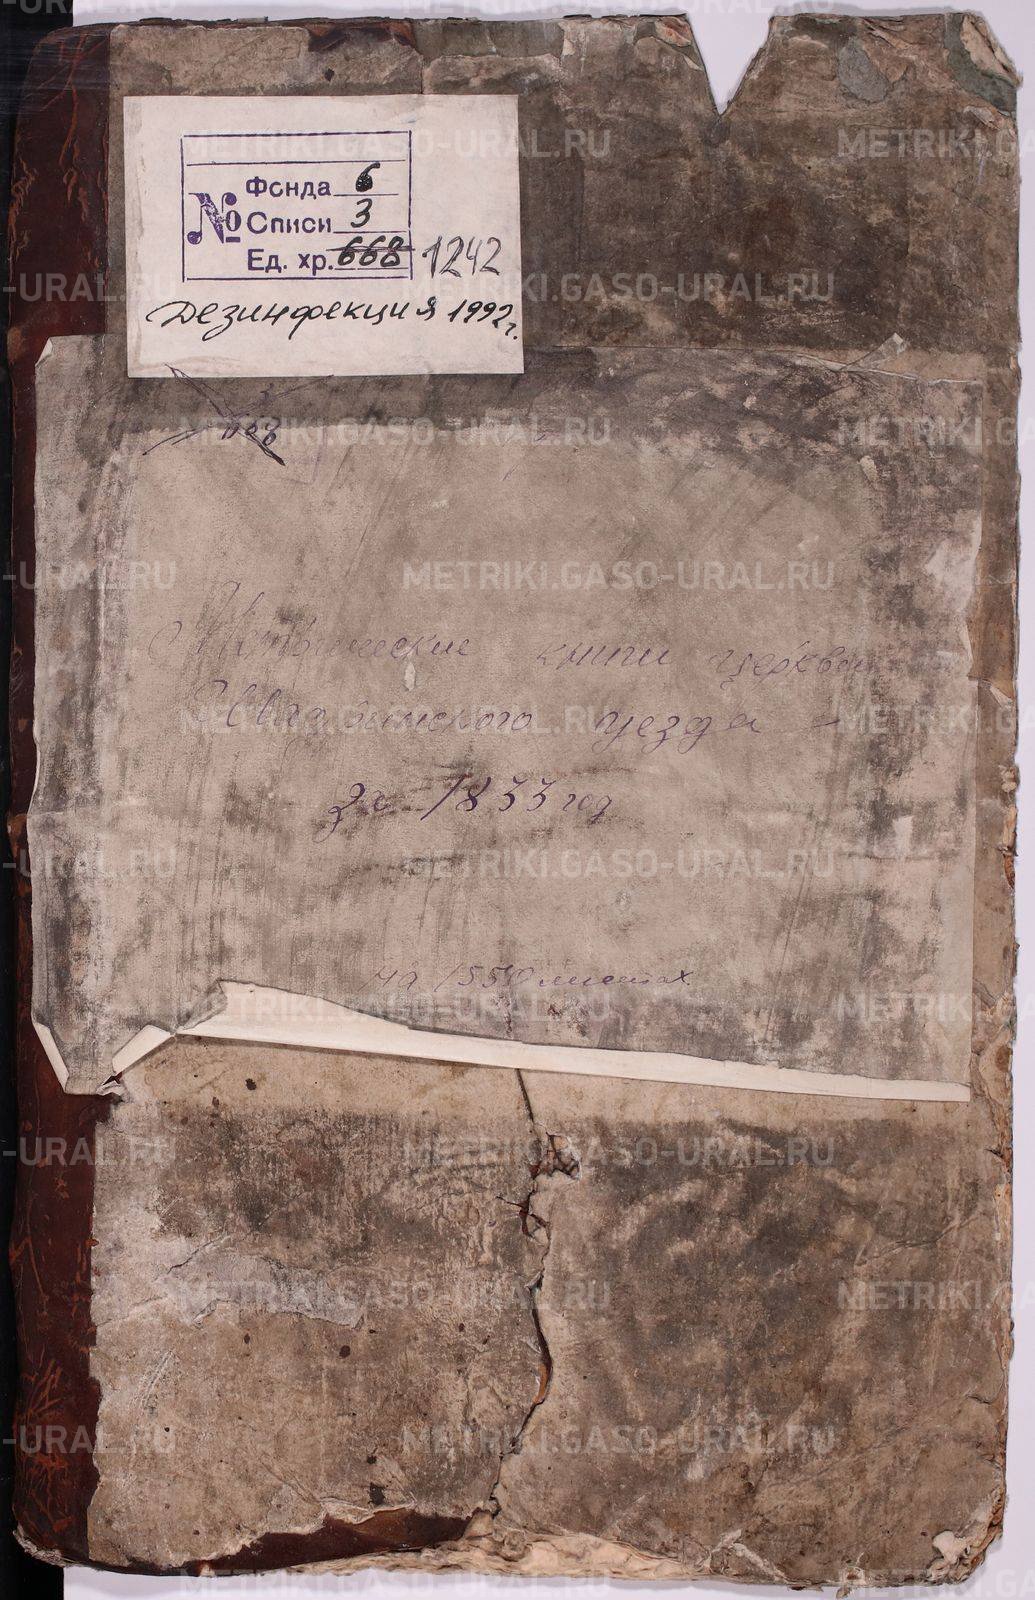 №
Фонда 6
Списи 3
Ед. хр. 668 1242
Дезинфекция 1992 г.
3
668
Метрические книги церквей
уезда
за 1833 год
на 1550 листах
METRIKI.GASO-URAL.RU